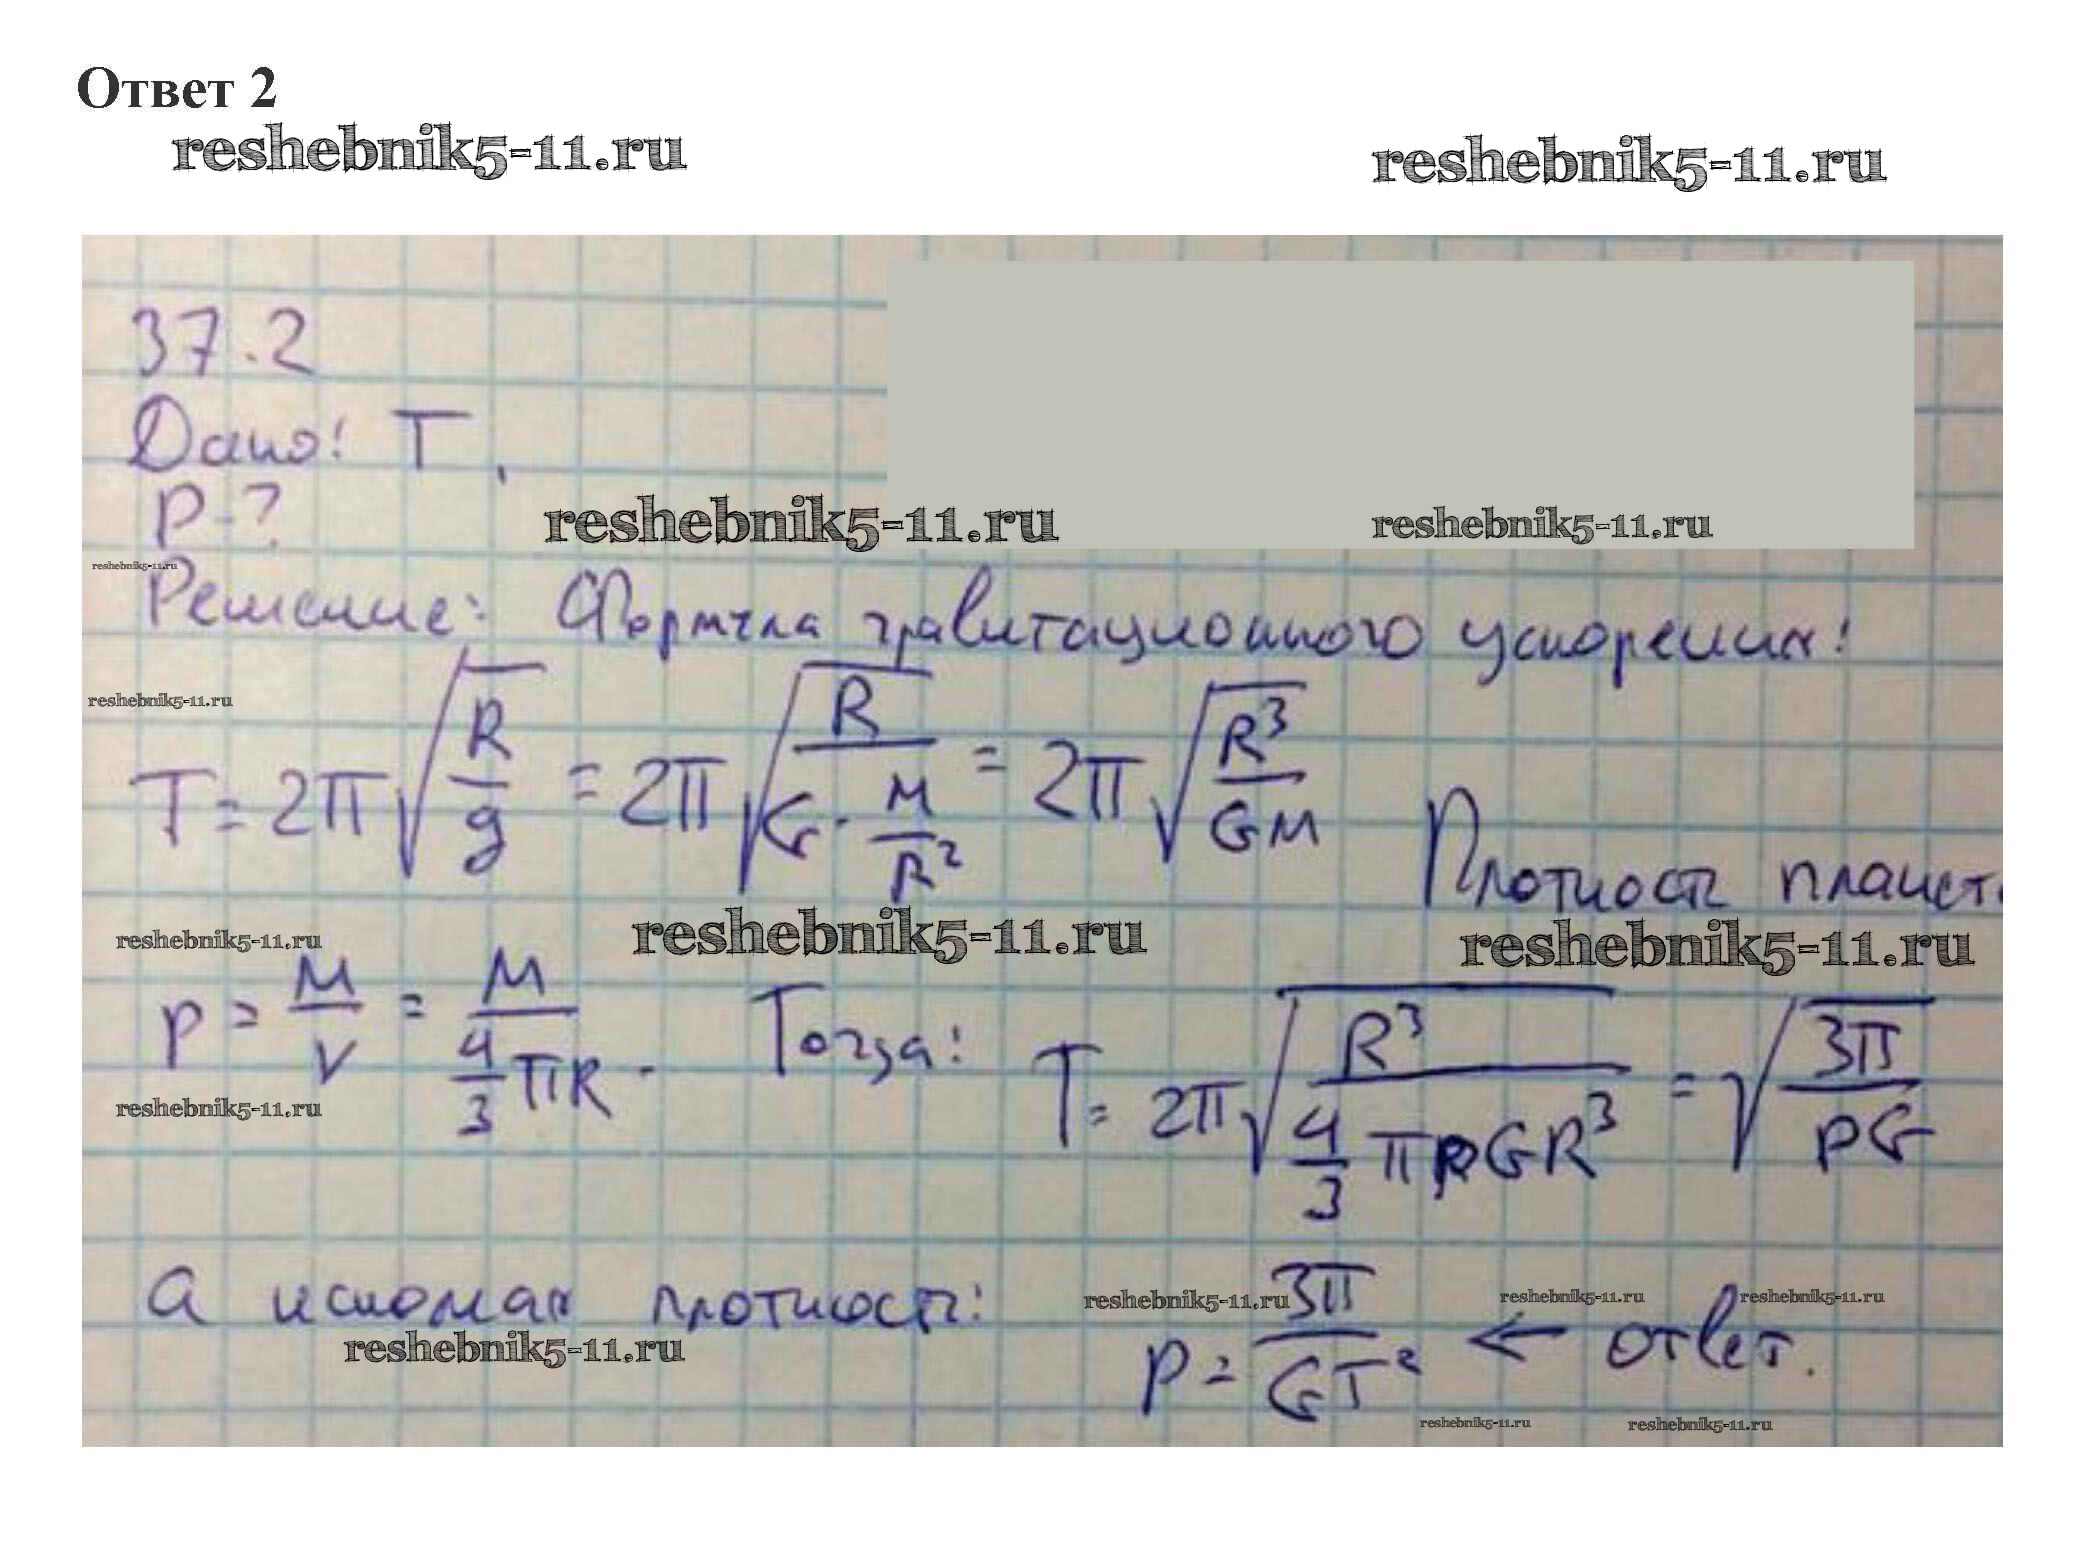 Ответ 2
reshebnik5-11.ru reshebnik5-11.ru
37.2
Дано: T,
ρ-?
reshebnik5-11.ru reshebnik5-11.ru
reshebnik5-11.ru
Решение: Формула гравитационного ускорения:
reshebnik5-11.ru
T = 2π√(R/g) = 2π√(R/(G·M/R²)) = 2π√(R³/GM) Плотность планет
reshebnik5-11.ru reshebnik5-11.ru reshebnik5-11.ru
ρ = M/V = M/(4/3 πR). Тогда: T = 2π√(R³/(4/3 πρGR³)) = √(3π/ρG)
reshebnik5-11.ru
а искомая плотность: ρ = 3π/GT² ← ответ.
reshebnik5-11.ru reshebnik5-11.ru reshebnik5-11.ru
reshebnik5-11.ru
reshebnik5-11.ru reshebnik5-11.ru